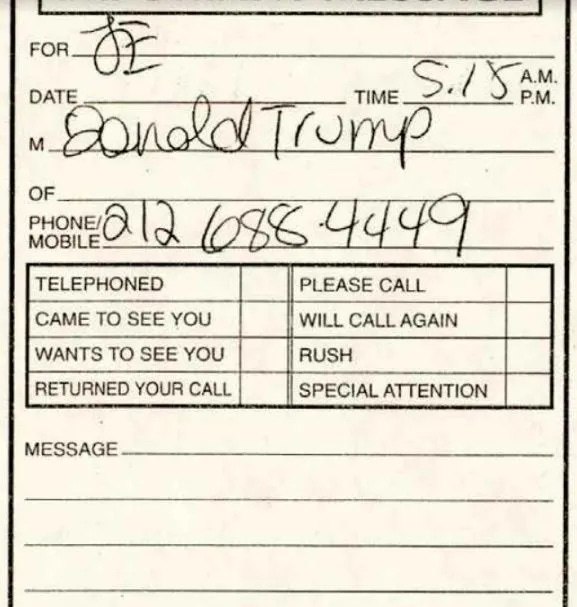 FOR JE
DATE TIME 5.15 A.M. P.M.
M Donald Trump
OF
PHONE/MOBILE 212 688-4449
TELEPHONED PLEASE CALL
CAME TO SEE YOU WILL CALL AGAIN
WANTS TO SEE YOU RUSH
RETURNED YOUR CALL SPECIAL ATTENTION
MESSAGE